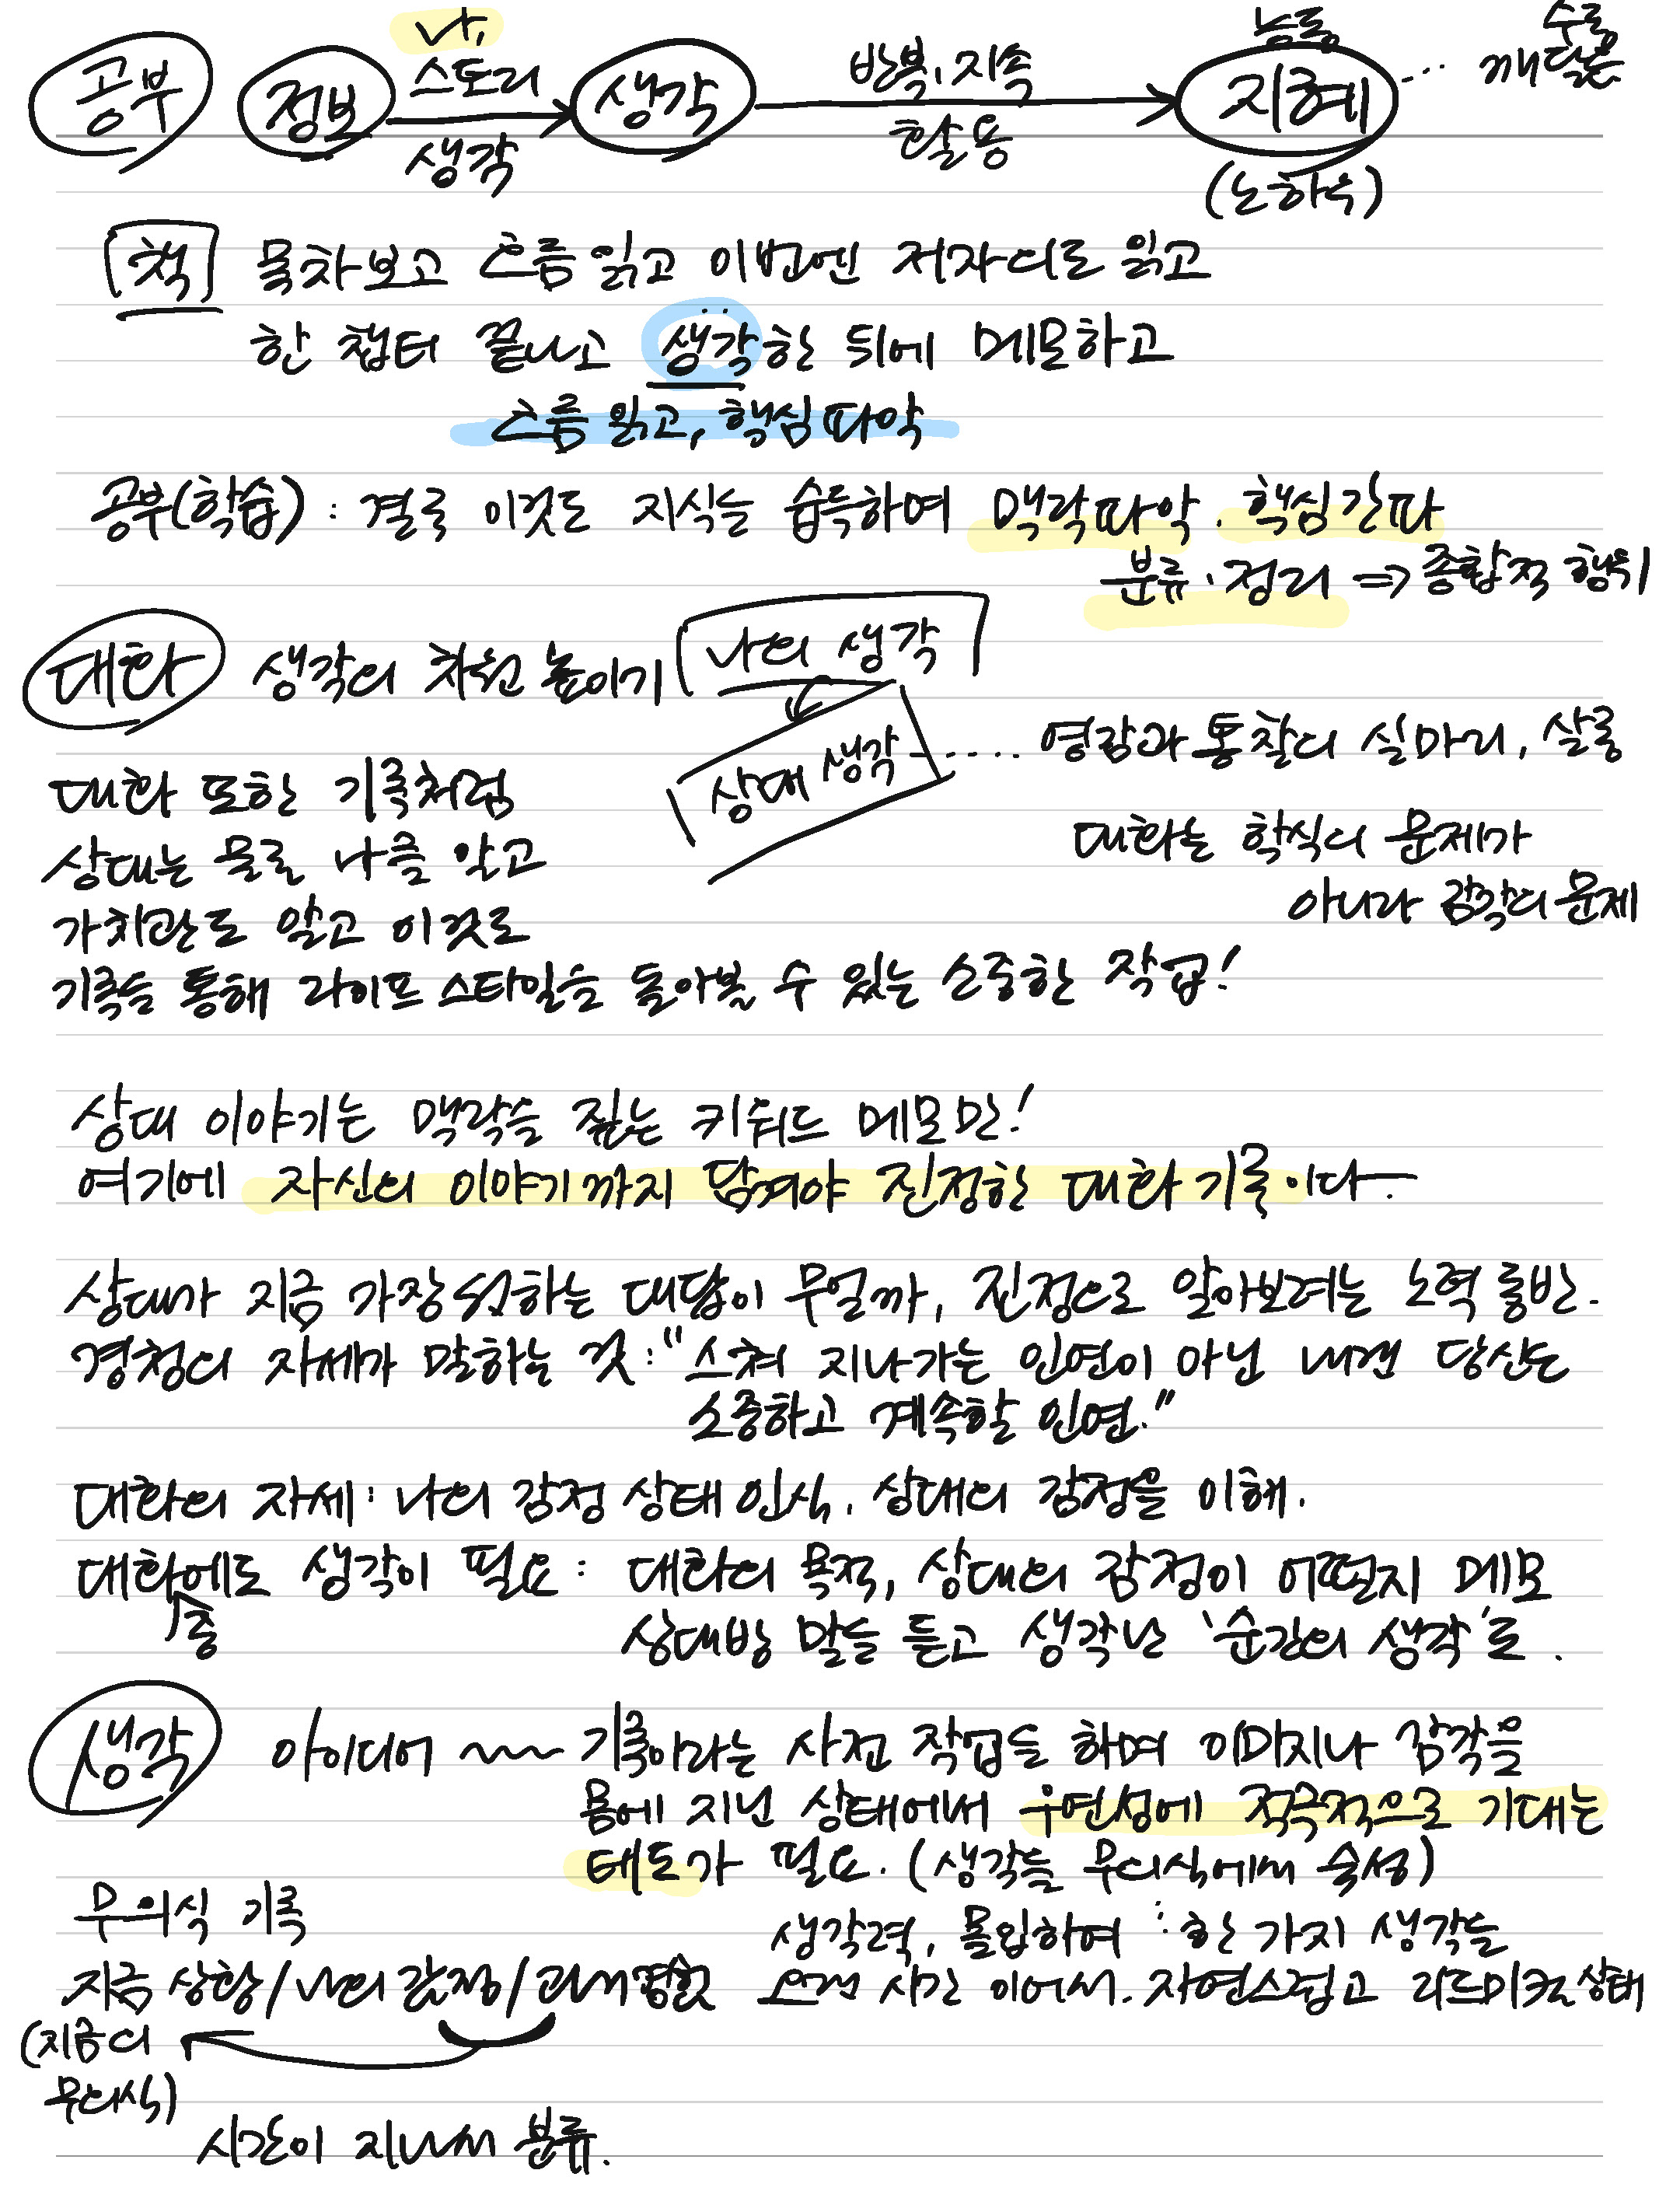 나,
스토리
공부 정보 생각 생각 반복, 지속 활용 능력 지혜 깨달음
(노하우)
책 목차보고 흐름 읽고 이번엔 저자의도 읽고
한 챕터 끝나고 생각한 뒤에 메모하고
흐름 읽고, 핵심파악
공부(학습) : 결국 이것도 지식을 습득하여 맥락파악. 핵심간파
분류·정리 => 종합적 행위
대화 생각의 차원 높이기 나의 생각
상대 생각 ····· 영감과 통찰의 실마리, 살롱
대화 또한 기록처럼
대화는 학식의 문제가
상대는 물론 나를 알고
아니라 감각의 문제
가치관도 알고 이것도
기록을 통해 라이프 스타일을 돌아볼 수 있는 소중한 작업!
상대 이야기는 맥락을 짚는 키워드 메모만!
여기에 자신의 이야기까지 담겨야 진정한 대화 기록이다.
상대가 지금 가장 원하는 대답이 무얼까, 진정으로 알아보려는 노력 동반.
경청의 자세가 말하는 것: "스쳐 지나가는 인연이 아닌 내겐 당신은
소중하고 계속할 인연."
대화의 자세: 나의 감정 상태 인식. 상대의 감정을 이해.
대화중에도 생각이 필요: 대화의 목적, 상대의 감정이 어떨지 메모
상대방 말을 듣고 생각난 '순간의 생각'도.
생각 아이디어 ~~~ 기록이라는 사전 작업을 하며 이미지나 감각을
몸에 지닌 상태에서 우연성에 적극적으로 기대는
태도가 필요. (생각을 무의식에서 숙성)
무의식 기록
생각력, 몰입하여 : 한 가지 생각을
지금 상황/나의 감정/과거 경험 오랜 시간 이어서. 자연스럽고 리드미컬 상태
(지금의
무의식)
시간이 지나서 분류.